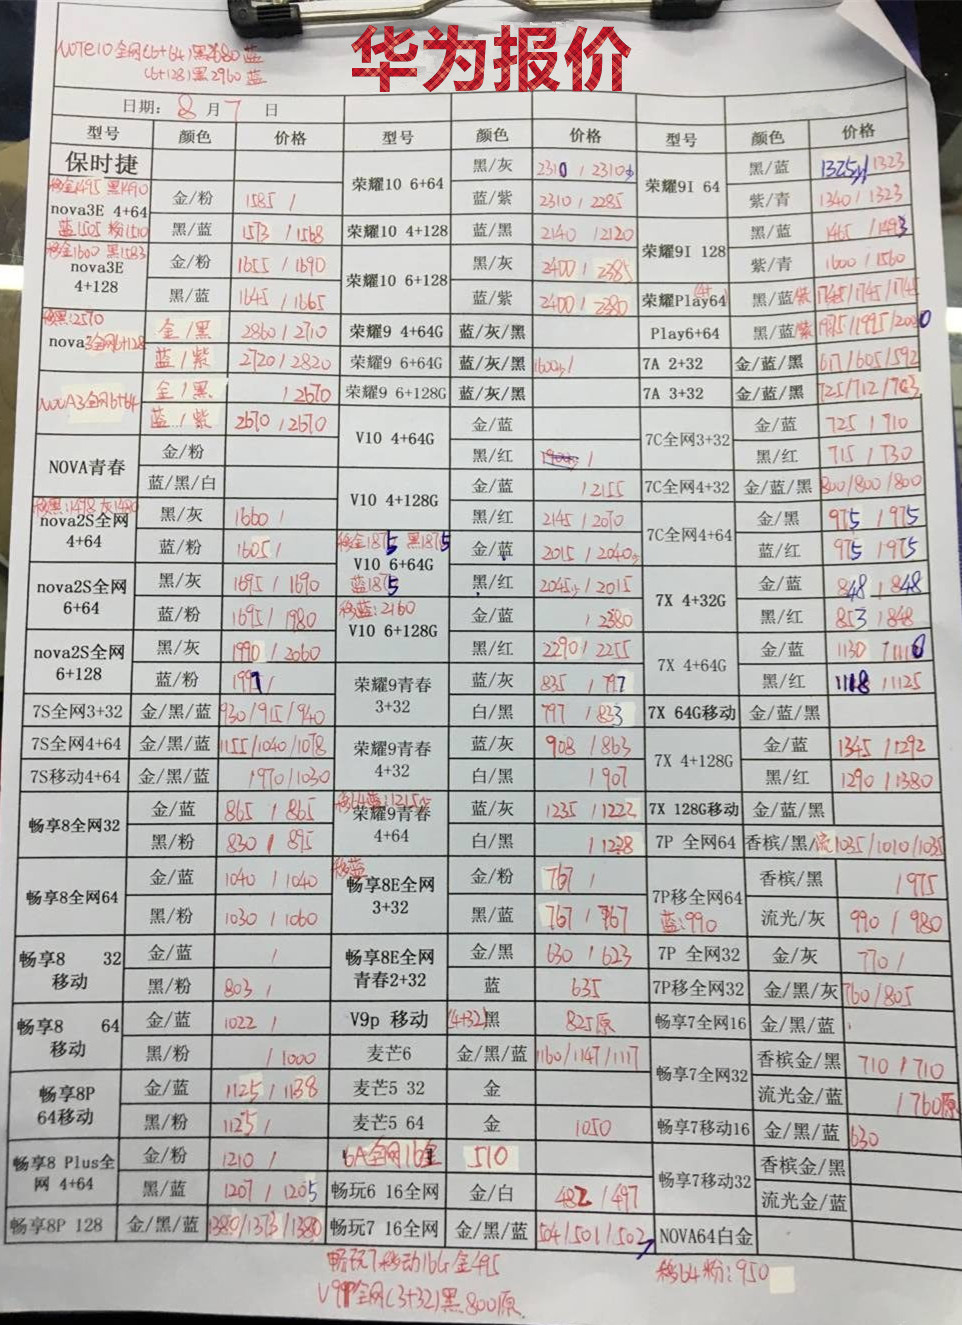 华为报价
NOTE10全网(6+64)黑2680 蓝
(6+128)黑2960 蓝
日期: 8 月 7 日
型号 颜色 价格 型号 颜色 价格 型号 颜色 价格
保时捷
移金1495 黑1490
nova3E 4+64
蓝1505 粉1510
金/粉 1585 /
黑/蓝 1573 / 1568
移金1600 黑1583
nova3E
4+128
金/粉 1655 / 1690
黑/蓝 1645 / 1665
移黑:2570
nova3全网6+128
金/黑 2860 / 2710
蓝/紫 2720 / 2820
NOVA3全网6+64
金/黑 / 2670
蓝/紫 2670 / 2670
NOVA青春
金/粉
蓝/黑/白
移黑:1498 灰1480
nova2S全网
4+64
黑/灰 1660 /
蓝/粉 1605 /
nova2S全网
6+64
黑/灰 1695 / 1690
蓝/粉 1695 / 1980
nova2S全网
6+128
黑/灰 1990 / 2060
蓝/粉
7S全网3+32 金/黑/蓝 930/915/940
7S全网4+64 金/黑/蓝 1155/1040/1078
7S移动4+64 金/黑/蓝 1970/1030
畅享8全网32
金/蓝 865 / 865
黑/粉 830 / 895
畅享8全网64
金/蓝 1040 / 1040
黑/粉 1030 / 1060
畅享8 32
移动
金/蓝 /
黑/粉 803 /
畅享8 64
移动
金/蓝 1022 /
黑/粉 / 1000
畅享8P
64移动
金/蓝 1125 / 1138
黑/粉 1125 /
畅享8 Plus全
网 4+64
金/粉 1210 /
黑/蓝 1207 / 1205
畅享8P 128 金/黑/蓝 1380/1373/1380
荣耀10 6+64
黑/灰 2310 / 2310
蓝/紫 2310 / 2285
荣耀10 4+128 蓝/黑 2140 / 2120
荣耀10 6+128
黑/灰 2400 / 2385
蓝/紫 2400 / 2380
荣耀9 4+64G 蓝/灰/黑
荣耀9 6+64G 蓝/灰/黑 1600 /
荣耀9 6+128G 蓝/灰/黑
V10 4+64G
金/蓝
黑/红 /
V10 4+128G
金/蓝 / 2155
黑/红 2145 / 2070
移金1875 黑1875
V10 6+64G
蓝1875
金/蓝 2015 / 2040
黑/红 2045 / 2015
移蓝:2160
V10 6+128G
金/蓝 / 2380
黑/红 2290 / 2255
荣耀9青春
3+32
蓝/灰 835 / 797
白/黑 797 / 833
荣耀9青春
4+32
蓝/灰 908 / 863
白/黑 / 907
移64蓝:1215
荣耀9青春
4+64
蓝/灰 1235 / 1222
白/黑 / 1228
移蓝
畅享8E全网
3+32
金/粉 767 /
黑/蓝 767 / 767
畅享8E全网
青春2+32
金/黑 630 / 623
蓝 635
V9p 移动 (4+32)黑 825原
麦芒6 金/黑/蓝 1160/1147/1117
麦芒5 32 金
麦芒5 64 金 1050
6A全网16金 510
畅玩6 16全网 金/白 482 / 497
畅玩7 16全网 金/黑/蓝 504/501/502
荣耀9I 64
黑/蓝 1325 / 1323
紫/青 1340 / 1323
荣耀9I 128
黑/蓝 1465 / 1493
紫/青 1600 / 1560
荣耀Play64 (4+) 黑/蓝 紫 1745/1745/1745
Play6+64 黑/蓝 紫
7A 2+32 金/蓝/黑 617/605/592
7A 3+32 金/蓝/黑 725/712/703
7C全网3+32
金/蓝 725 / 710
黑/红 715 / 730
7C全网4+32 金/蓝/黑 800/800/800
7C全网4+64
金/黑 975 / 975
蓝/红 975 / 975
7X 4+32G
金/蓝 848 / 848
黑/红 853 / 848
7X 4+64G
金/蓝 1130 /
黑/红 1118 / 1125
7X 64G移动 金/蓝/黑
7X 4+128G
金/蓝 1345 / 1292
黑/红 1290 / 1380
7X 128G移动 金/蓝/黑
7P 全网64 香槟/黑/流 1035/1010/1035
7P移全网64
蓝:990
香槟/黑 1975
流光/灰 990 / 980
7P 全网32 金/灰 770 /
7P移全网32 金/黑/灰 760/805
畅享7全网16 金/黑/蓝
畅享7全网32
香槟金/黑 710 / 710
流光金/蓝 / 760原
畅享7移动16 金/黑/蓝 630
畅享7移动32
香槟金/黑
流光金/蓝
NOVA64白金
畅玩7移动16G 金495
V9P全网(3+32)黑 800原
移64粉:950